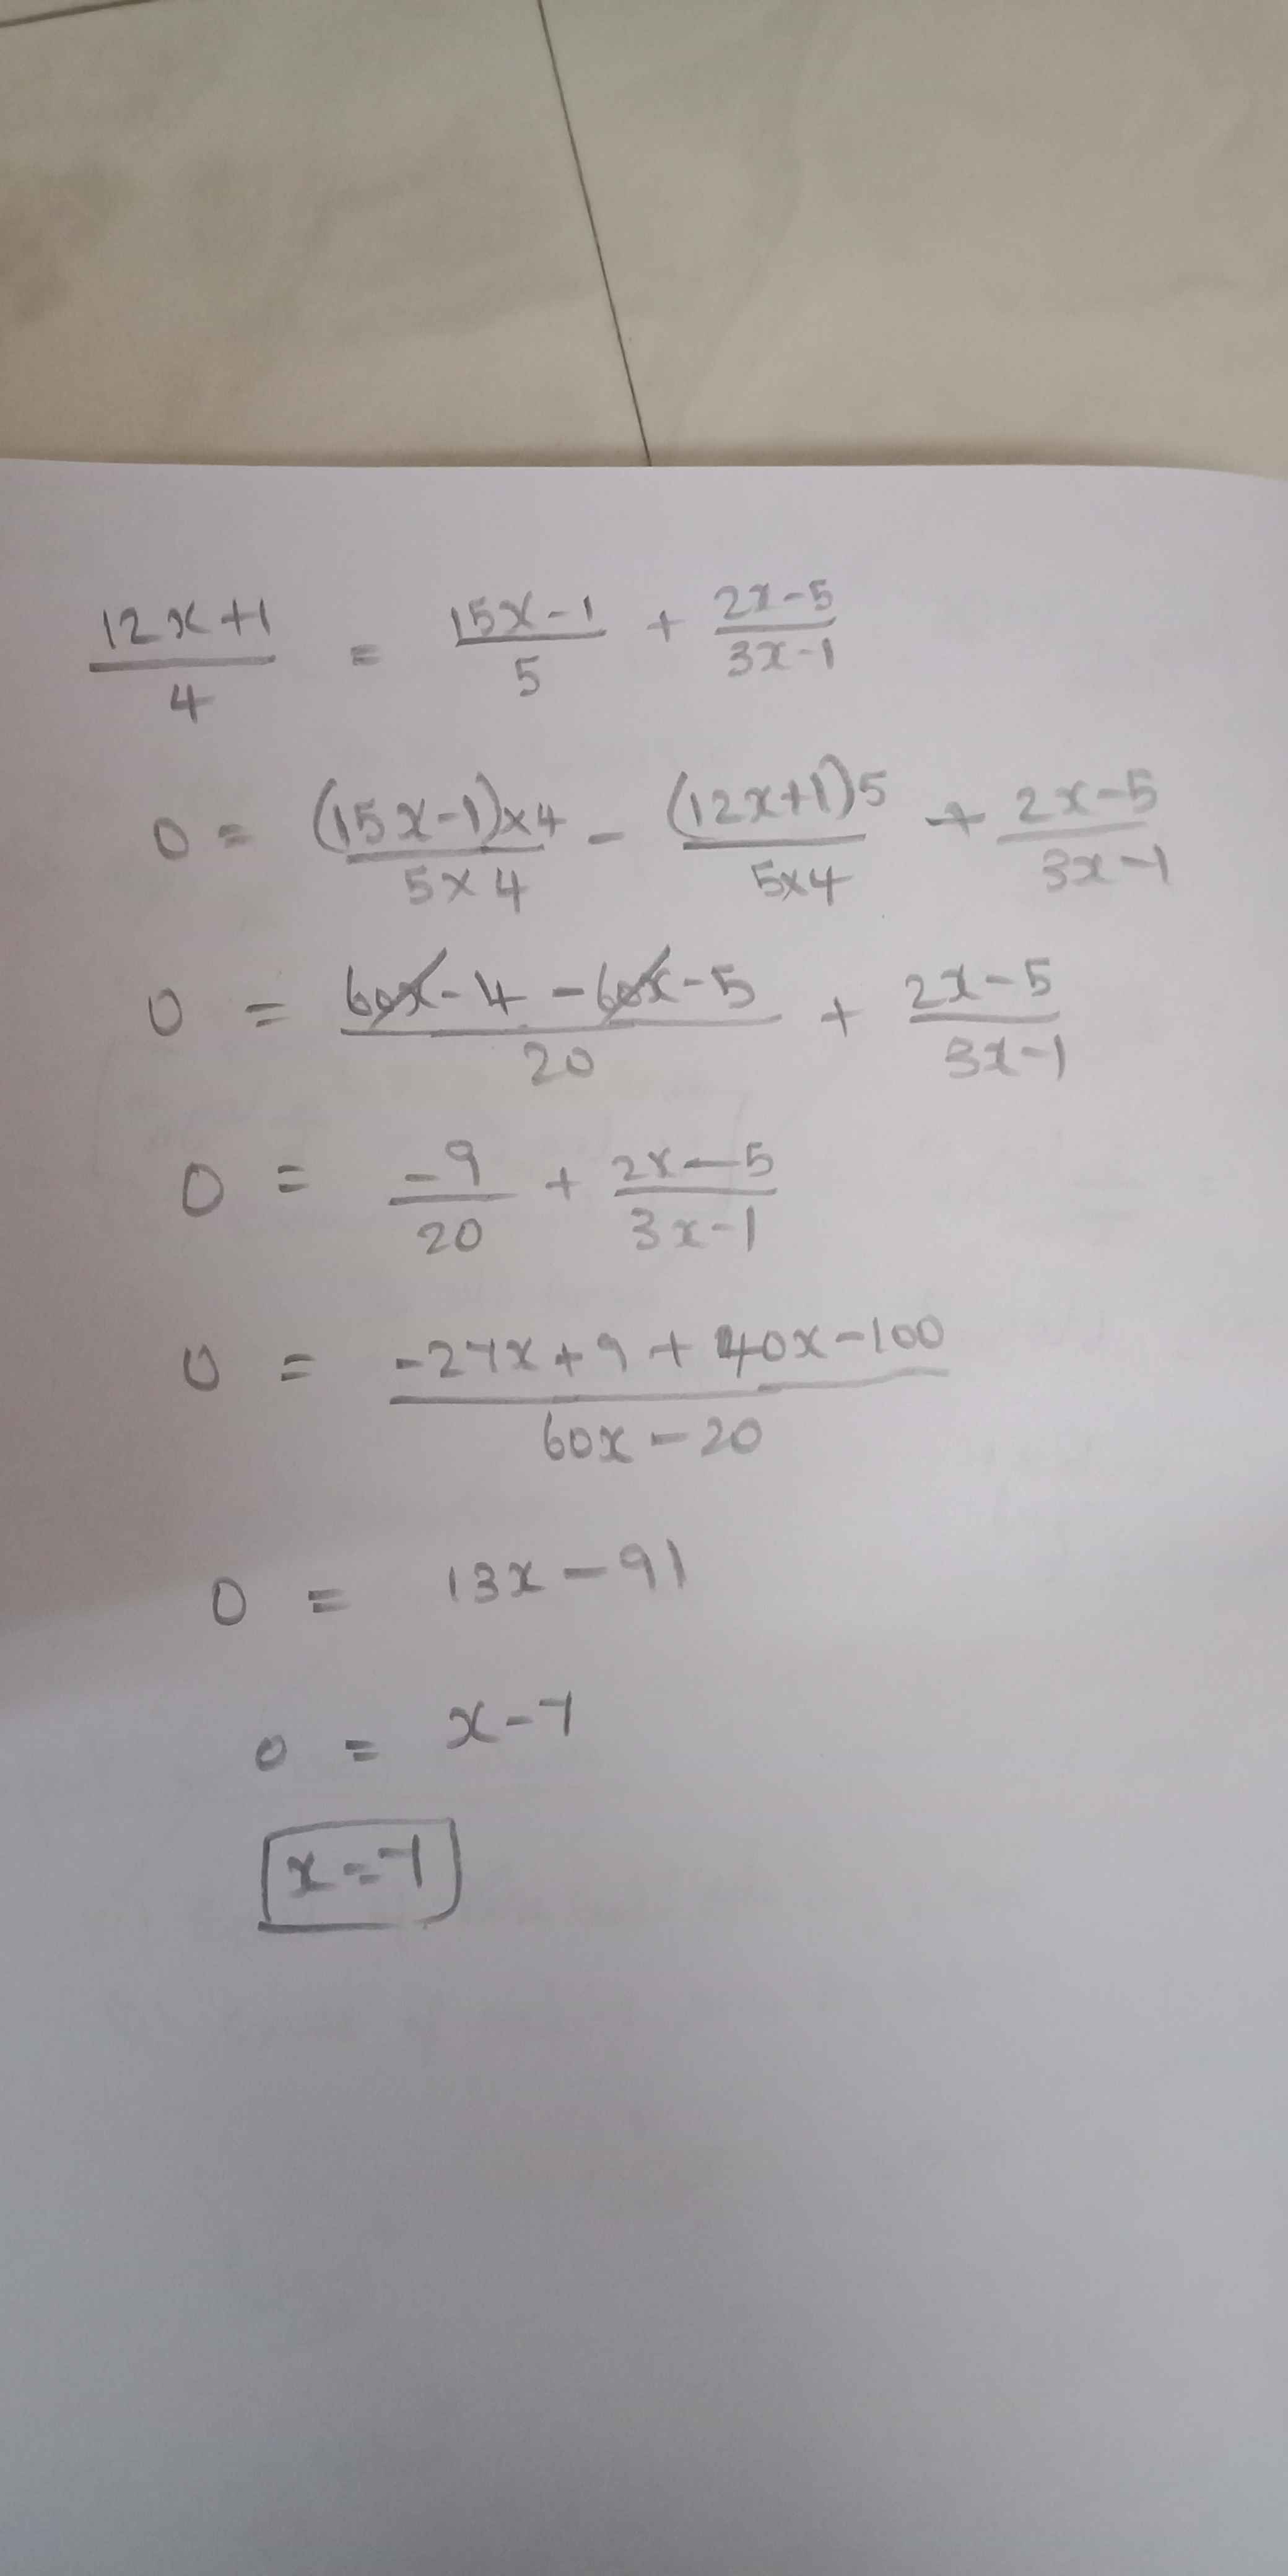 (12x+1)/4 = (15x-1)/5 + (2x-5)/(3x-1)
0 = ((15x-1)×4)/(5×4) - ((12x+1)5)/(5×4) + (2x-5)/(3x-1)
0 = (60x-4-60x-5)/20 + (2x-5)/(3x-1)
0 = -9/20 + (2x-5)/(3x-1)
0 = (-27x+9+40x-100)/(60x-20)
0 = 13x-91
0 = x-7
x=7